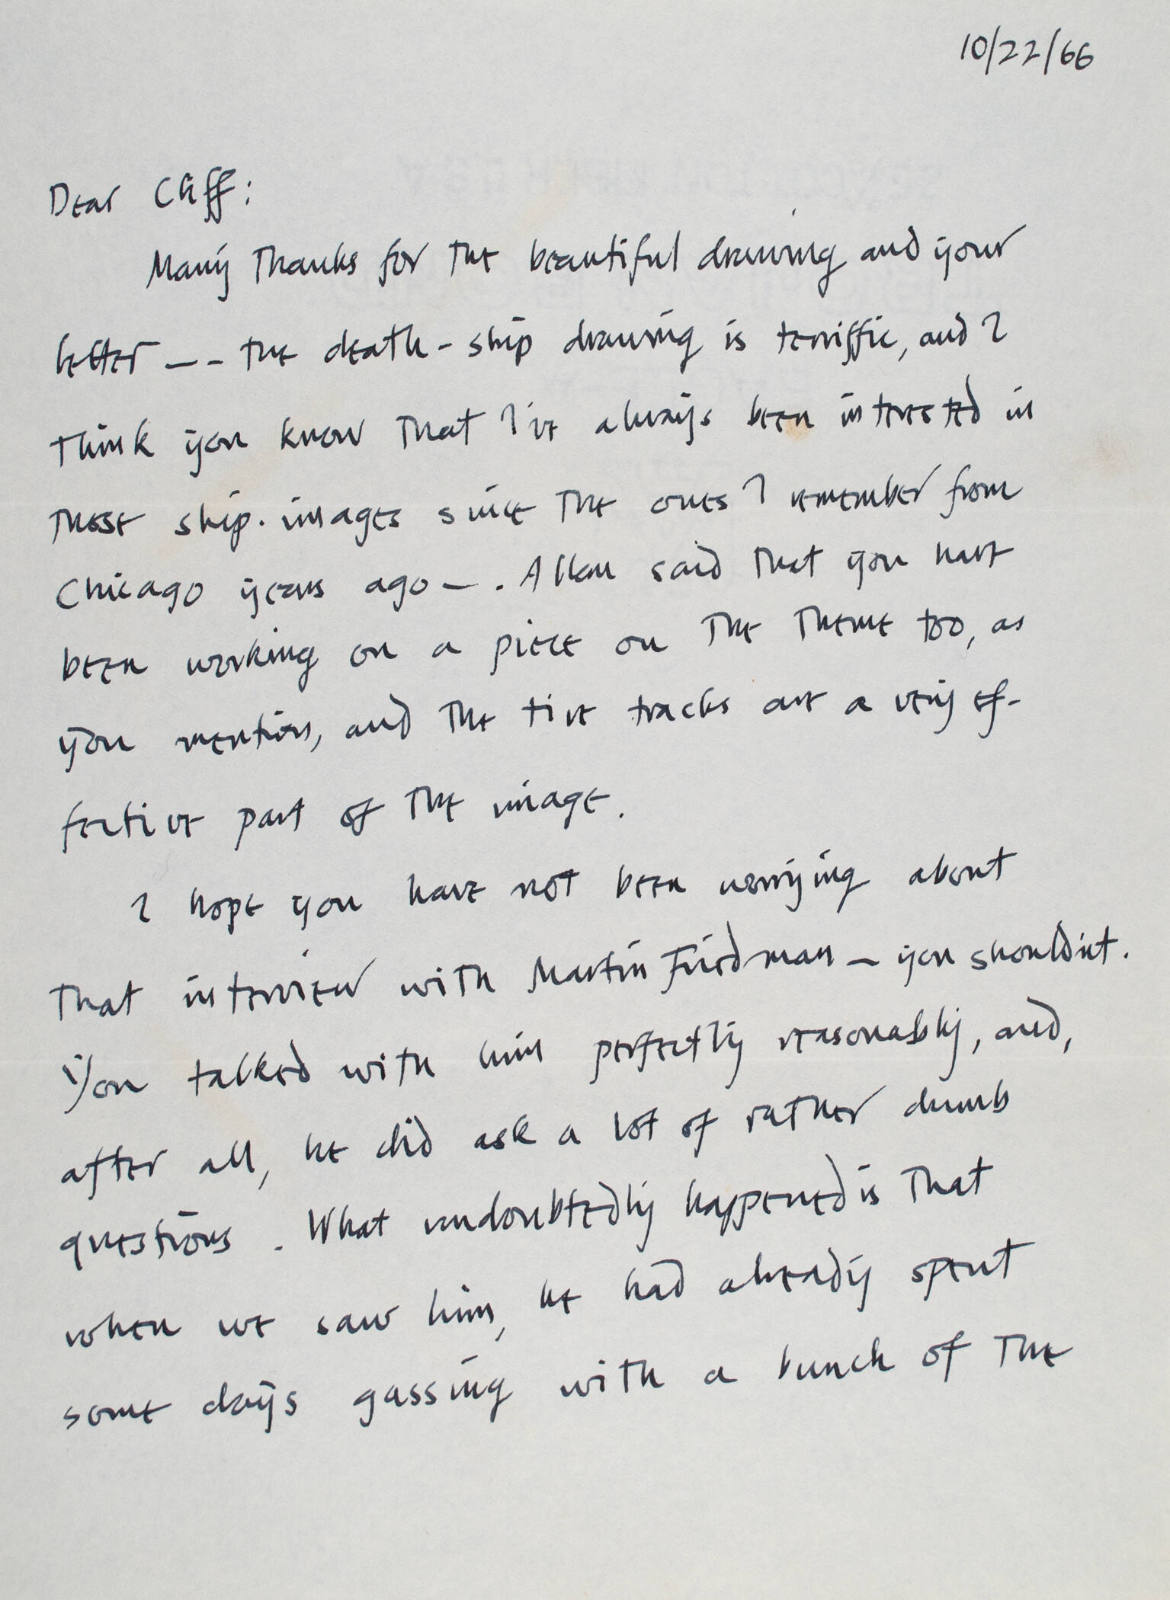 10/22/66
Dear Cliff:
Many Thanks for the beautiful drawing and your
letter -- the death-ship drawing is terriffic, and I
think you know that I've always been interested in
these ship-images since the ones I remember from
Chicago years ago —. Allan said that you have
been working on a piece on the theme too, as
you mention, and the tire tracks are a very ef-
fective part of the image.
I hope you have not been worrying about
that interview with Martin Friedman — you shouldn't.
You talked with him perfectly reasonably, and,
after all, he did ask a lot of rather dumb
questions. What undoubtedly happened is that
when we saw him, he had already spent
some days gassing with a bunch of the